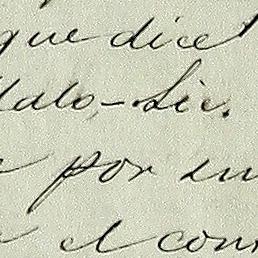 que dice
Malo,-Sic.
por un
el con